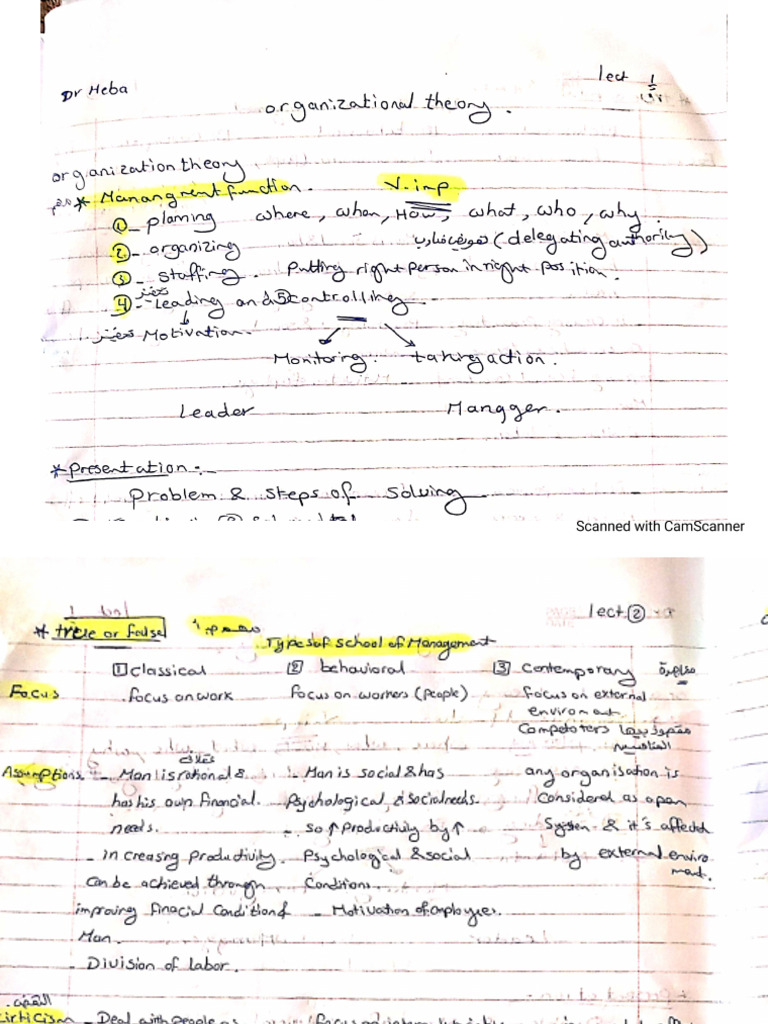 Dr Heba
lect 1
organizational theory.
organization theory
* Manangment function. V.imp
① - planing where, when, How, what, who, why.
② - organizing (delegating authority)
③ - staffing. Putting right person in right position.
④ - Leading and ⑤ controlling
Motivation.
Monitoring. taking action.
Leader Mangger.
* Presentation:-
Problem & steps of solving
Scanned with CamScanner
lect ②
* true or false
Types of school of Management
1 classical 2 behavioral 3 Contemporary معاصرة
Focus .focus on work Focus on workers (people) focus on external
enviroment.
Competeters مقصود بيها
المنافسين
عقلاني
Assumptions - Man is rational & - Man is social & has any organisation is
has his own financial. Psychological & social needs. Considered as open
needs. - so ↑ Productivity by ↑ System & it's affected
- increasing productivity. Psychological & social by external enviro
Can be achieved through Conditions. ment.
improving finacial Condition of - Motivation of employees.
Man.
- Division of labor.
النقد
Cirticism - Deal with people as